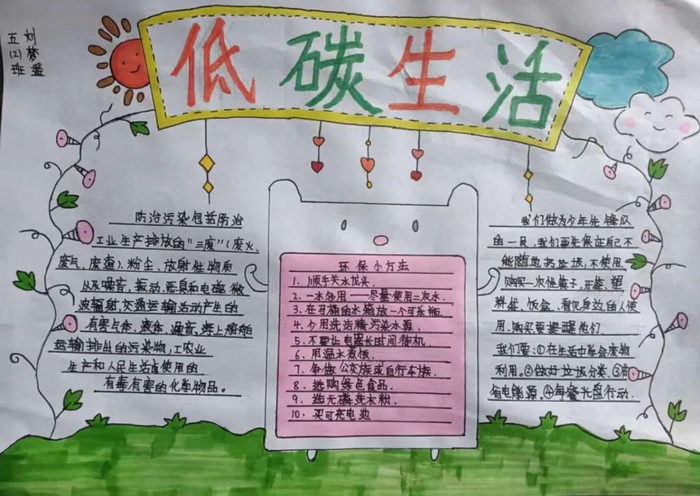 五(2)班
刘梦遥
低碳生活
防治污染包括防治
工业生产排放的"三废"(废水,
废气,废渣),粉尘,放射性物质
以及噪音,振动,恶臭和电磁微
波辐射,交通运输活动产生的
有害气体,液体,噪音,海上船舶
运输排出的污染物,工农业
生产和人民生活使用的
有毒有害的化学物品。
环保小方法
1、顺手关水龙头。
2、一水多用——尽量使用二次水。
3、在马桶的水箱放一个可乐瓶
4、少用洗洁精污染水源
5、不要让电器长时间待机
6、用温水煮饭。
7、争做公交族或自行车族。
8、选购绿色食品。
9、选无磷洗衣粉
10、买可充电池
我们做为少年先锋队
的一员,我们要先保证自己不
能随意扔垃圾,不使用,
购买一次性筷子,
饭盒,看见身边的人使
用,购买要提醒他们
我们要:①在生活中学会废物
利用。②做好垃圾分类。③
省电能源。④每餐光盘行动。